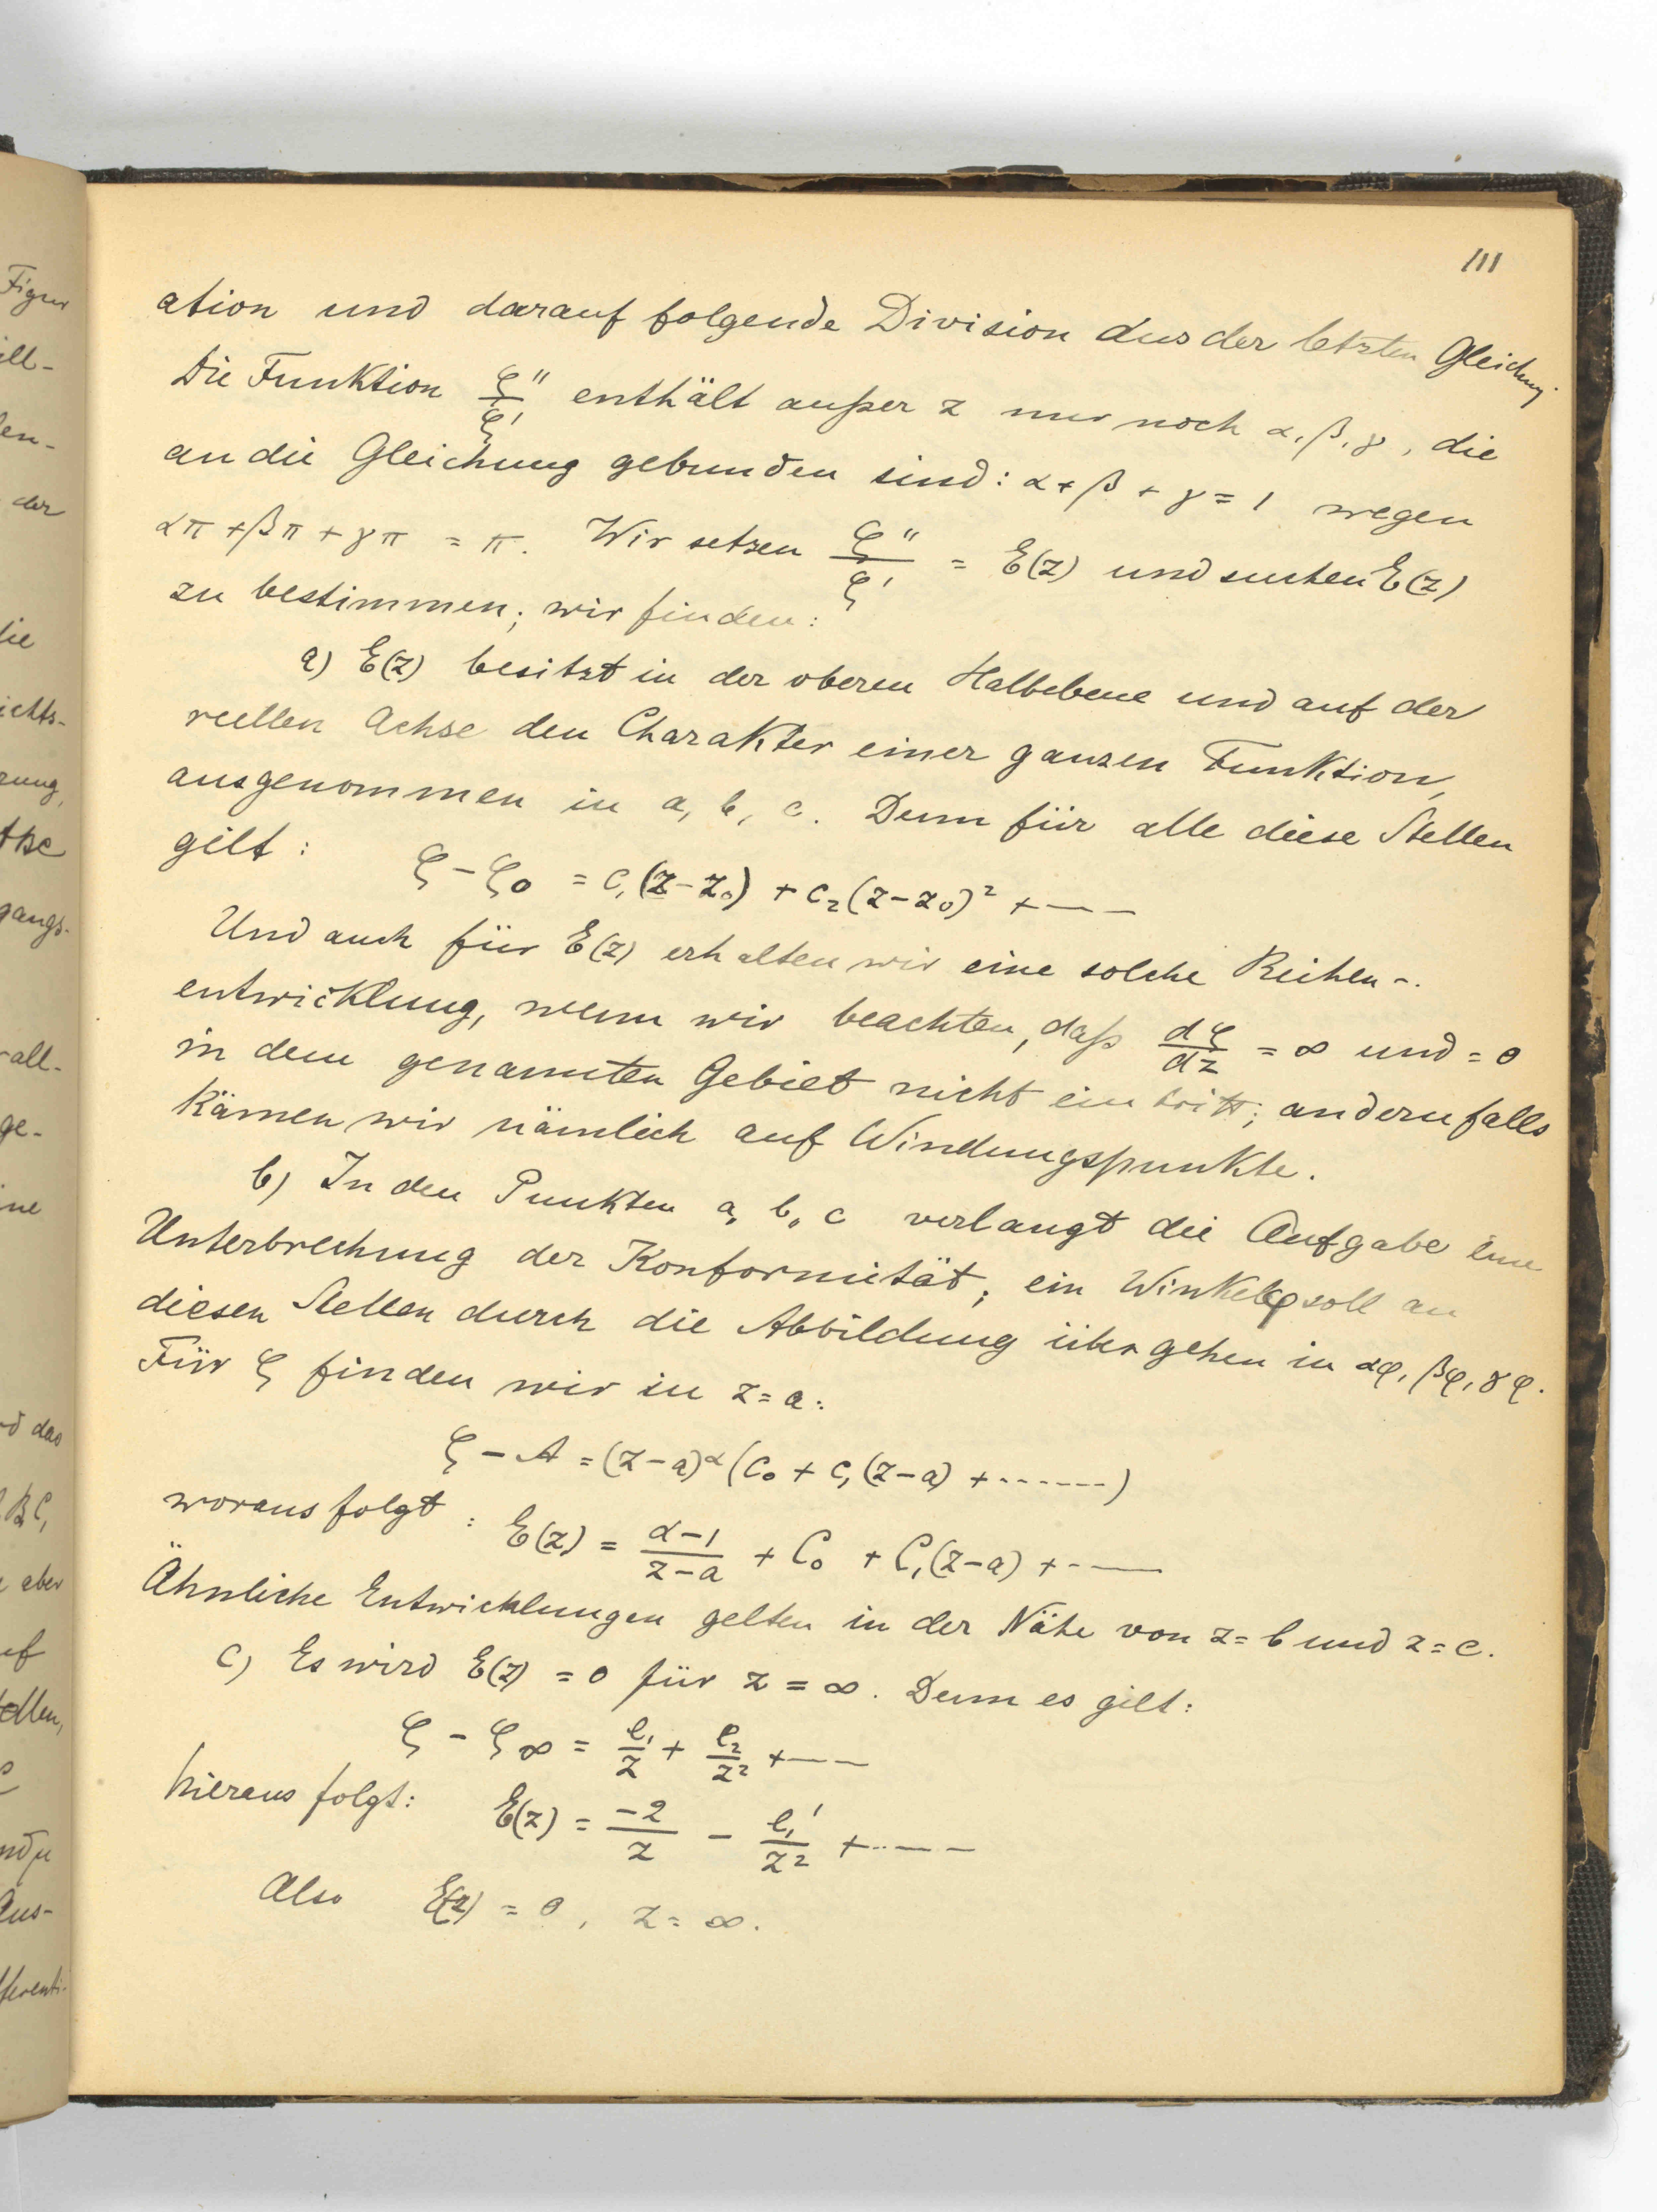 111
ation und darauf folgende Division aus der letzten Gleichung
Die Funktion ζ''/ζ' enthält außer z nur noch α, β, γ, die
an die Gleichung gebunden sind: α + β + γ = 1 wegen
απ + βπ + γπ = π. Wir setzen ζ''/ζ' = E(z) und suchen E(z)
zu bestimmen; wir finden:
a) E(z) besitzt in der oberen Halbebene und auf der
reellen Achse den Charakter einer ganzen Funktion,
ausgenommen in a, b, c. Denn für alle diese Stellen
gilt: ζ - ζ₀ = c₁(z-z₀) + c₂(z-z₀)² + ---
Und auch für E(z) erhalten wir eine solche Reihen-
entwicklung, wenn wir beachten, daß dζ/dz = ∞ und = 0
in dem genannten Gebiet nicht eintritt; andernfalls
kämen wir nämlich auf Windungspunkte.
b) In den Punkten a, b, c verlangt die Aufgabe eine
Unterbrechung der Konformität; ein Winkel φ soll an
diesen Stellen durch die Abbildung übergehen in αφ, βφ, γφ.
Für ζ finden wir in z = a:
ζ - A = (z-a)^α (c₀ + c₁(z-a) + ------)
woraus folgt: E(z) = (α-1)/(z-a) + C₀ + C₁(z-a) + ---
Ähnliche Entwicklungen gelten in der Nähe von z = b und z = c.
c) Es wird E(z) = 0 für z = ∞. Denn es gilt:
ζ - ζ∞ = e₁/z + e₂/z² + ---
hieraus folgt: E(z) = -2/z - e₁'/z² + ----
Also E(z) = 0, z = ∞.
Figur
ill-
en-
der
sie
ichts-
zung,
gangs-
all-
ge-
ine
d das
BC,
aber
uf
ellen,
Aus-
fferenti-